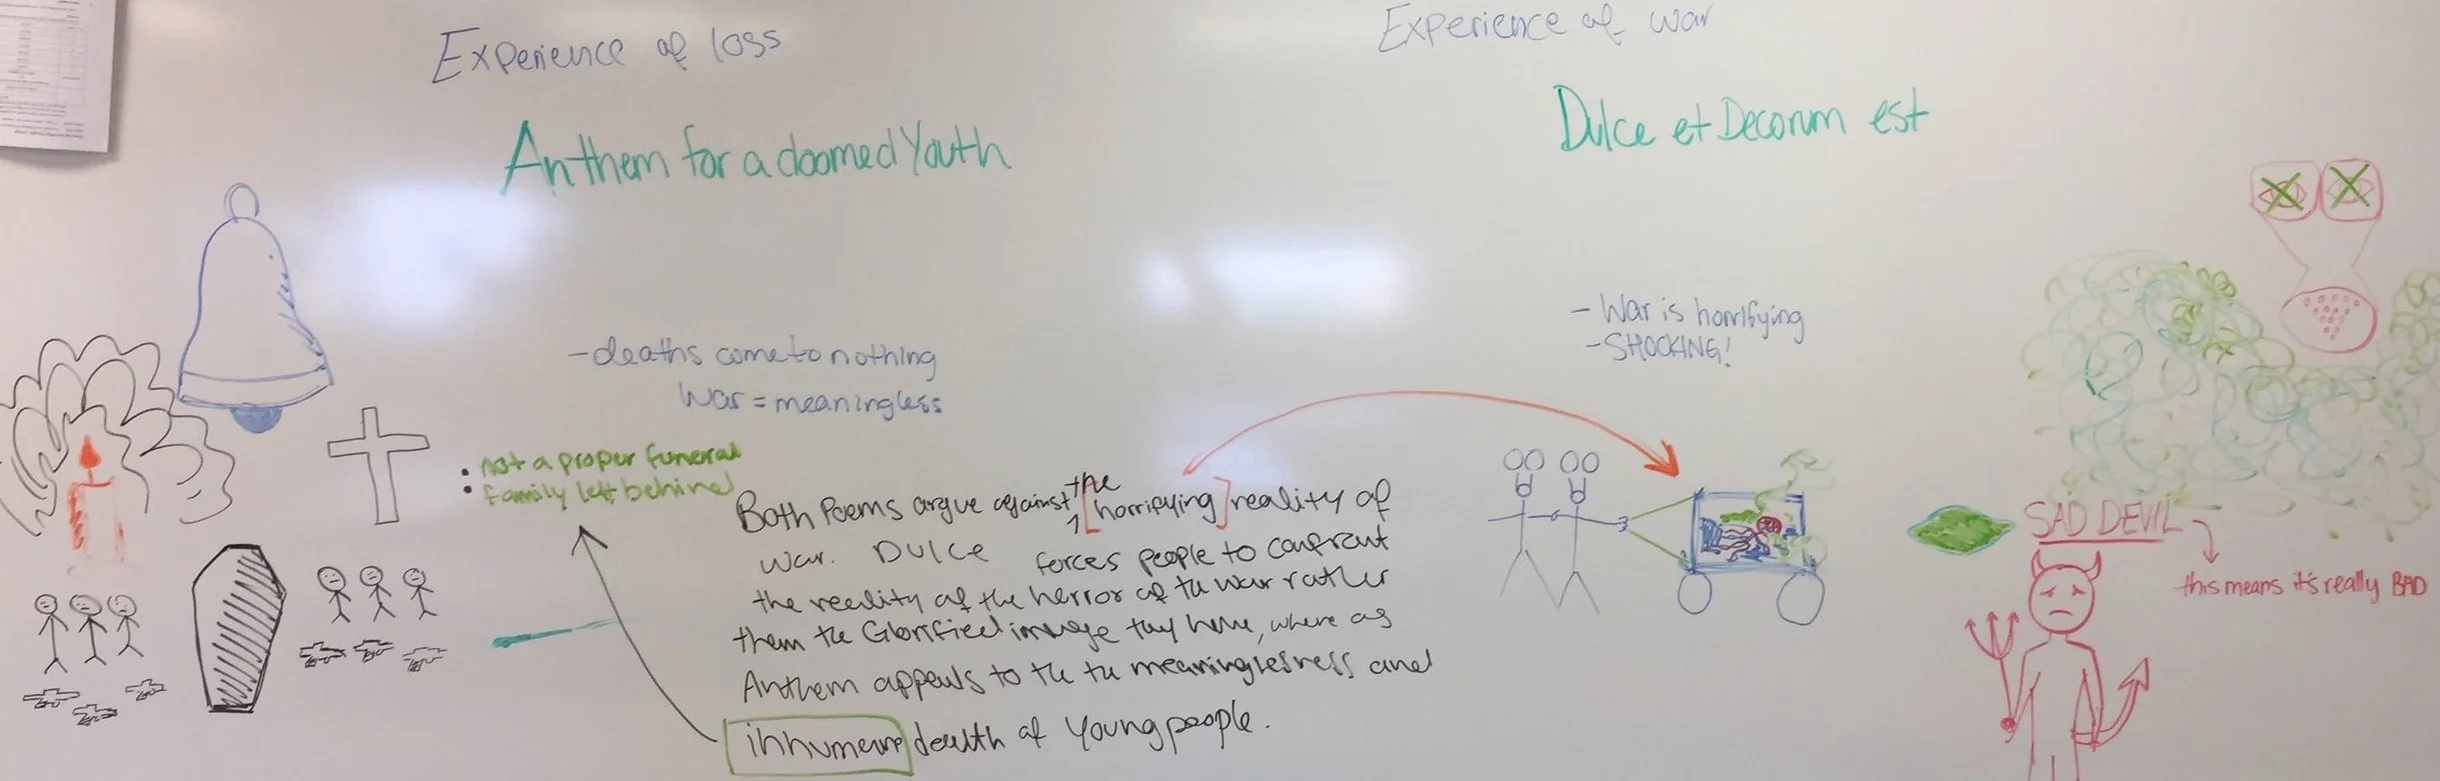 Experience of loss
Anthem for a doomed Youth
- deaths come to nothing
War = meaningless
• not a proper funeral
• family left behind
Both Poems argue against the [horrifying] reality of
war. DULCE forces people to confront
the reality of the horror of the war rather
them the Glorified image they have, where as
Anthem appeals to the the meaninglesness and
inhumane death of young people.
Experience of war
Dulce et Decorum est
- War is horrifying
- SHOCKING!
SAD DEVIL
this means it's really BAD